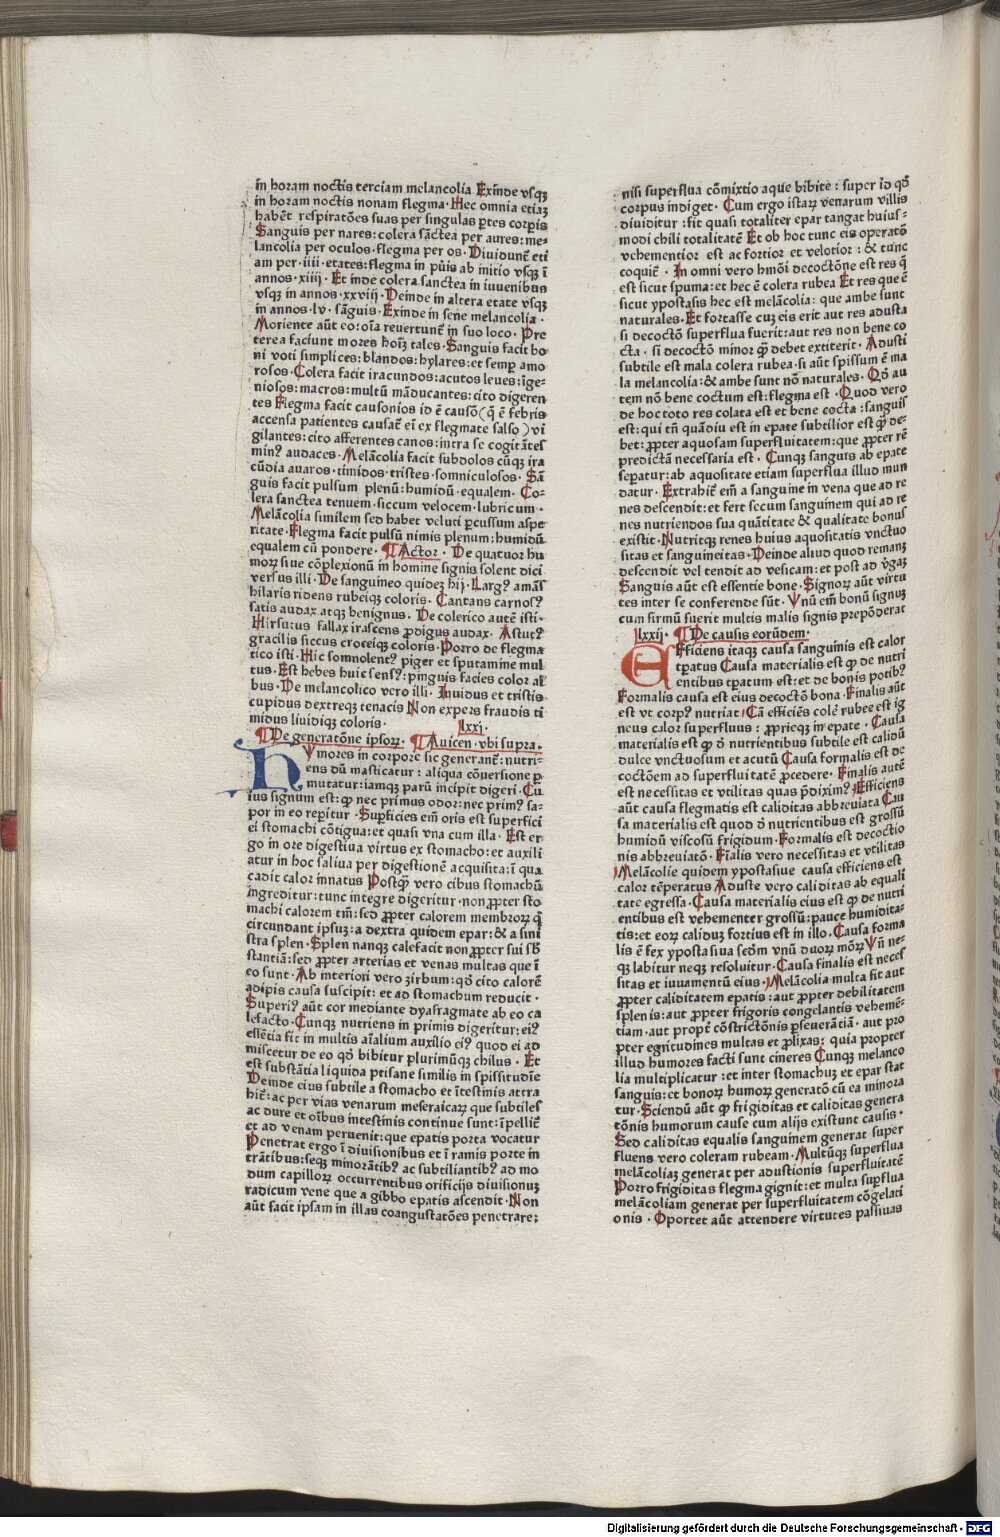 in horam noctis terciam melancolia Exinde vsqꝫ
in horam noctis nonam flegma · Hec omnia etiaꝫ
habēt respiratōes suas per singulas ꝑtes corꝑis
Sanguis per nares: colera sāctea per aures: me-
lancolia per oculos · flegma per os · Diuidunt̄ eti
am per · iiii · etates: flegma in pūis ab initio vsqꝫ ī
annos · xiiij · Et inde colera sanctea in iuuenibus
vsqꝫ in annos · xxviij · Deinde in altera etate vsqꝫ
in annos · lv · sāguis · Exinde in sene melancolia ·
Moriente aūt eo: oīa reuertunt̄ in suo loco · Pre
terea faciunt mores hoīꝫ tales · Sanguis facit bo
ni voti simplices: blandos: hylares: et semꝑ amo
rosos · Colera facit iracundos: acutos leues: īge-
niosos: macros: multū māducantes: cito digeren
tes Flegma facit causonios id ē causō (q̄ ē febris
accensa patientes causat̄ eī ex flegmate salso) vi
gilantes: cito afferentes canos: intra se cogitātes
minꝰ audaces · Melācolia facit subdolos cūqꝫ ira
cūdia auaros · timidos · tristes · somniculosos · Sā
guis facit pulsum plenū: humidū · equalem · Co-
lera sanctea tenuem · siccum velocem · lubricum ·
Melācolia similem sed habet veluti ꝑcussum aspe
ritate · Flegma facit pulsū nimis plenum: humidū
equalem cū pondere · ¶ Actor · De quatuor hu
morꝫ siue cōplexionū in homine signis solent dici
versus illi · De sanguineo quideꝫ hij · Largꝰ amās
hilaris ridens rubeiqꝫ coloris · Cantans carnosꝰ
satis audax atqꝫ benignus · De colerico autē isti ·
Hirsutus fallax irascens ꝓdigus audax · Astutꝰ
gracilis siccus croceiqꝫ coloris · Porro de flegma
tico isti · Hic somnolentꝰ piger et sputamine mul
tus · Est hebes huic sensꝰ: pinguis facies color al
bus · De melancolico vero illi · Inuidus et tristis
cupidus dextreqꝫ tenacis Non expers fraudis ti
midus liuidiqꝫ coloris · lxxj ·
¶ De generatōne ipsoꝝ · ¶ Auicen · vbi supra ·
HVmores in corpore sic generant̄: nutri-
ens dū masticatur: aliqua cōuersione ꝑ
mutatur: iamqꝫ parū incipit digeri · Cu
ius signum est: ꝙ nec primus odor: nec primꝰ sa-
por in eo reꝑitur · Suꝑficies em̄ oris est superfici
ei stomachi cōtigua: et quasi vna cum illa · Est er
go in ore digestiua virtus ex stomacho: et auxili
atur in hoc saliua per digestionē acquisita: ī qua
cadit calor innatus Postqꝫ vero cibus stomachū
ingreditur: tunc integre digeritur · non ꝓpter sto
machi calorem tm̄: sed ꝓpter calorem membroꝝ q̄
circundant ipsuꝫ: a dextra quidem epar: & a sini
stra splen · Splen nanqꝫ calefacit non ꝓpter sui sb̄
stantiā: sed ꝓpter arterias et venas multas que ī
eo sunt · Ab interiori vero zirbum: qd̄ cito calorē
adipis causa suscipit: et ad stomachum reducit ·
Superiꝰ aūt cor mediante dyafragmate ab eo ca
lefacto · Cunqꝫ nutriens in primis digeritur: eiꝰ
essētia fit in multis aīalium auxilio eiꝰ quod ei ad
miscetur de eo qd̄ bibitur plurimūqꝫ chilus · Et
est substātia liquida ptisane similis in spissitudīe
Deinde eius subtile a stomacho et ītestinis attra
hit̄: ac per vias venarum meseraicaꝝ que subtiles
ac dure et oībus intestinis continue sunt: īpellit̄
et ad venam peruenit: que epatis porta vocatur
Penetrat ergo ī diuisionibus et ī ramis porte in
trātibus: seqꝫ minorātibꝰ ac subtiliantibꝰ ad mo
dum capilloꝝ occurrentibus orificijs diuisionuꝫ
radicum vene que a gibbo epatis ascendit · Non
aūt facit ipsam in illas coangustatōes penetrare:
nisi superflua cōmixtio aque bibite: super id qd̄
corpus indiget · Cum ergo istaꝝ venarum villis
diuiditur: fit quasi totaliter epar tangat huius-
modi chili totalitatē Et ob hoc tunc eis operatō
vehementior est ac fortior et velotior: & tunc
coquit̄ · In omni vero hmōi decoctōne est res q̄
est sicut spuma: et hec ē colera rubea Et res que ē
sicut ypostasis hec est melācolia: que ambe sunt
naturales · Et fortasse cuꝫ eis erit aut res adusta
si decoctō superflua fuerit: aut res non bene co
cta · si decoctō minor qꝫ debet extiterit · Adusti
subtile est mala colera rubea · si aūt spissum ē ma
la melancolia: & ambe sunt nō naturales · Qd̄ au
tem nō bene coctum est: flegma est · Quod vero
de hoc toto res colata est et bene cocta: sanguis
est: qui tn̄ quādiu est in epate subtilior est qꝫ de-
bet: ꝓpter aquosam superfluitatem: que ꝓpter rē
predictā necessaria est · Cunqꝫ sanguis ab epate
seꝑatur: ab aquositate etiam superflua illud mun
datur · Extrahit̄ em̄ a sanguine in vena que ad re
nes descendit: et fert secum sanguinem qui ad re
nes nutriendos sua quātitate & qualitate bonus
existit · Nutritqꝫ renes huius aquositatis vnctuo
sitas et sanguineitas · Deinde aliud quod remanꝫ
descendit vel tendit ad vesicam: et post ad v̄gaꝫ
Sanguis aūt est essentie bone · Signoꝝ aūt virtu
tes inter se conferende sūt · Vnū em̄ bonū signuꝫ
cum firmū fuerit multis malis signis prepōderat
lxxij · ¶ De causis eorūdem ·
EFficiens itaqꝫ causa sanguinis est calor
tꝑatus Causa materialis est ꝙ de nutri
entibus tꝑatum est: et de bonis potibꝰ
Formalis causa est eius decoctō bona · Finalis aūt
est vt corpꝰ nutriat · Cā efficiēs colē rubee est ig
neus calor superfluus: ꝓprieqꝫ in epate · Causa
materialis est ꝙ d̄ nutrientibus subtile est calidū
dulce vnctuosum et acutū Causa formalis est de
coctōem ad superfluitatē ꝓcedere · Finalis autē
est necessitas et vtilitas quas p̄diximꝰ · Efficiens
aūt causa flegmatis est caliditas abbreuiata Cau
sa materialis est quod d̄ nutrientibus est grossū
humidū viscosū frigidum · Formalis est decoctio
nis abbreuiatō · Fīalis vero necessitas et vtilitas
Melācolie quidem ypostasiue causa efficiens est
calor tēperatus Aduste vero caliditas ab equali
tate egressa · Causa materialis eius est ꝙ de nutri
entibus est vehementer grossū: pauce humidita-
tis: et eoꝝ caliduꝫ fortius est in illo · Causa forma
lis ē fex ypostasiua scdm̄ vnū duoꝝ moꝝ Vn̄ ne-
qꝫ labitur neqꝫ resoluitur · Causa finalis est neces
sitas et iuuamentū eius · Melācolia multa fit aut
ꝓpter caliditatem epatis: aut ꝓpter debilitatem
splenis: aut ꝓpter frigoris congelantis veheme-
tiam · aut propt̄ cōstrictōnis ꝑseuerātiā · aut pro
pter egritudines multas et ꝓlixas: quia propter
illud humores facti sunt cineres Cunqꝫ melanco
lia multiplicatur: et inter stomachuꝫ et epar stat
sanguis: et bonoꝝ humoꝝ generatō cū ea minora
tur · Sciendū aūt ꝙ frigiditas et caliditas genera
tōnis humorum cause cum alijs existunt causis ·
Sed caliditas equalis sanguinem generat super
fluens vero coleram rubeam · Multūqꝫ superflua
melācoliaꝫ generat per adustionis superfluitatē
Porro frigiditas flegma gignit: et multa suꝑflua
melācoliam generat per superfluitatem cōgelati
onis · Oportet aūt attendere virtutes passiuas
Digitalisierung gefördert durch die Deutsche Forschungsgemeinschaft - DFG